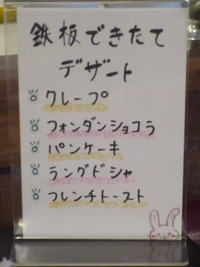 鉄板できたて
デザート
クレープ
フォンダンショコラ
パンケーキ
ラングドシャ
フレンチトースト